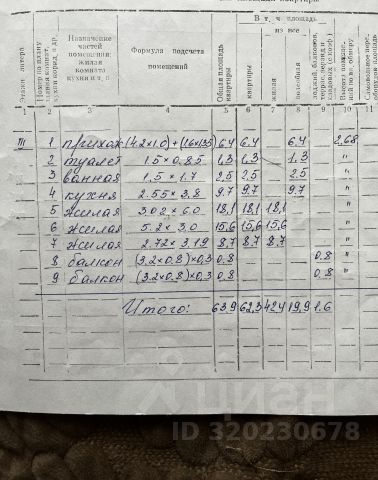 В т. ч. площадь
из нее
Этажи, литера
Номер по плану
Назначение
частей
помещений:
жилая
комната
кухня и т. п.
Формула подсчета
помещений
Общая площадь
квартиры
квартиры
жилая
подсобная
лоджий, балконов,
1 2 3 4 5 6 7 8 9 10 11
III 1 прихож (4.2×1.0)+(1.6×1.35) 6.4 6.4 6.4 2,68
2 туалет 1.5×0.85 1,3 1,3 1,3 "
3 ванная 1,5×1.7 2.5 2.5 2.5 "
4 кухня 2.55×3.8 9.7 9.7 9.7 "
5 жилая 3.02×6.0 18,1 18,1 18,1 "
6 жилая 5.2×3.0 15,6 15,6 15,6 "
7 жилая 2.72×3.19 8,7 8,7 8,7 "
8 балкон (3.2×0.8)×0,3 0,8 0.8 "
9 балкон (3.2×0.8)×0,3 0.8 0.8 "
Итого: 63,9 62,3 42,4 19,9 1.6
циан
ID 320230678